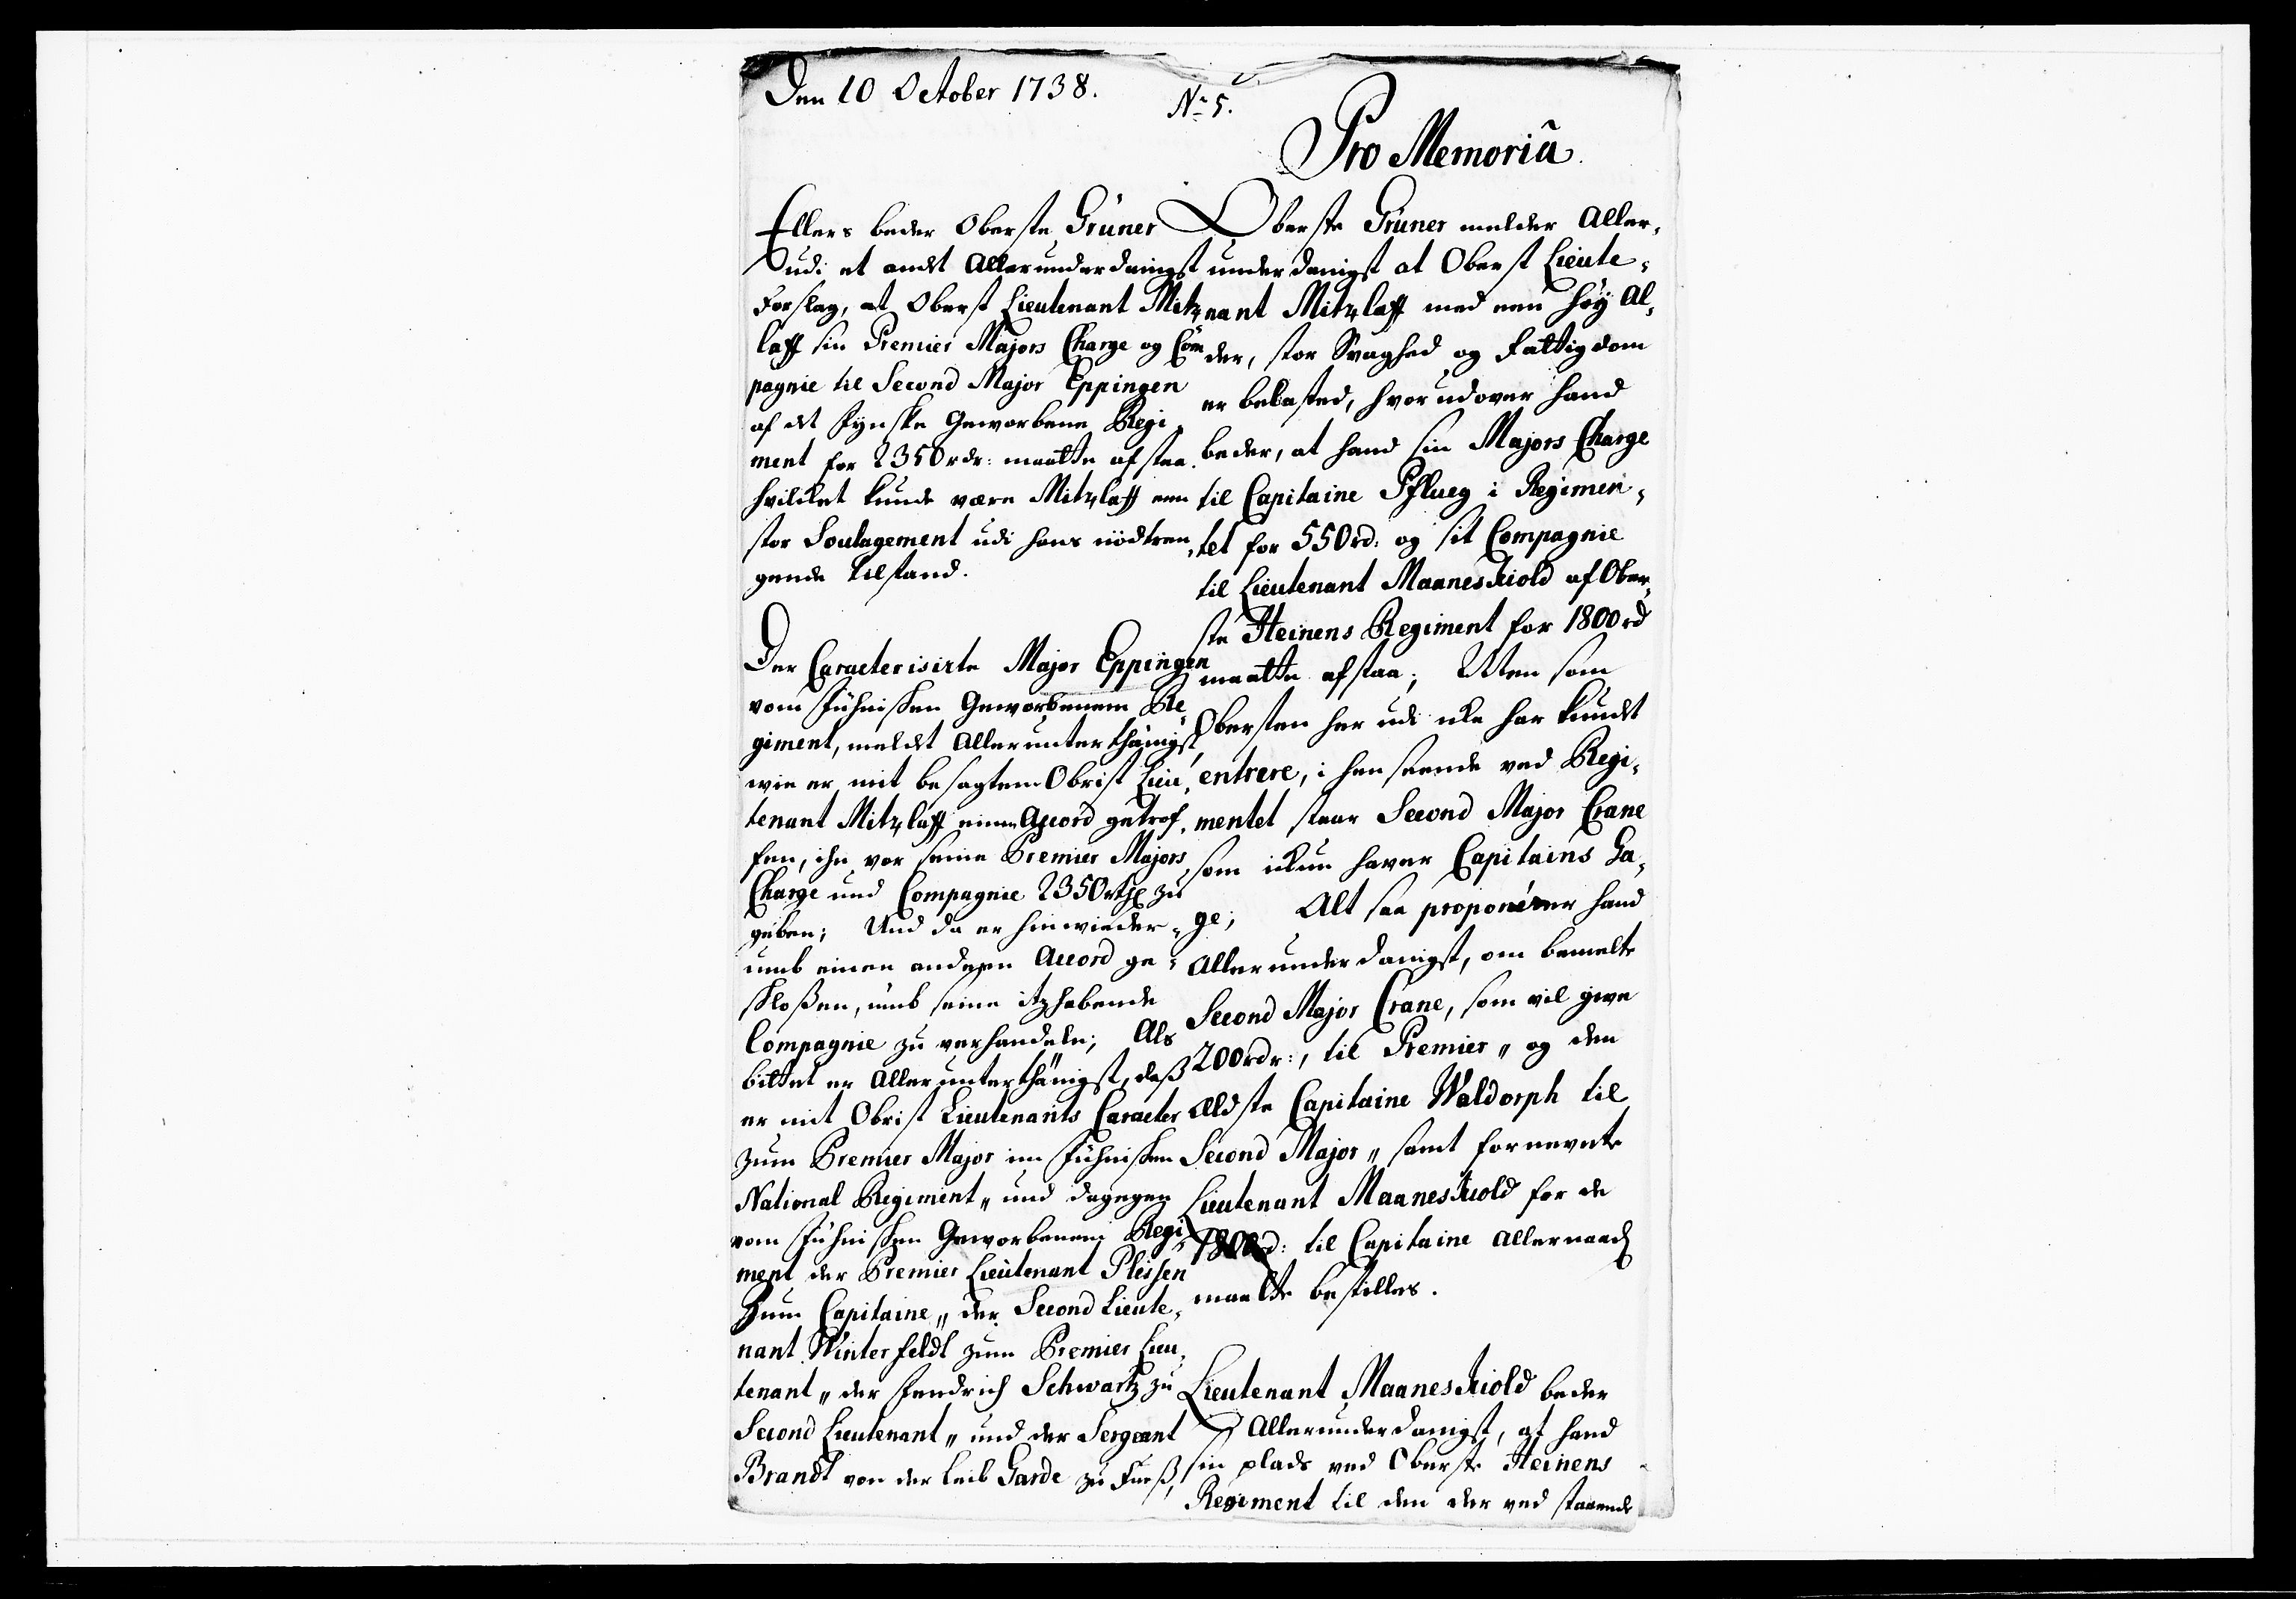 Den 10 October 1738.
No 5.
Pro Memoria
Ellers beder Oberste Grüner
udi et andet Allerunderdanigst
Forslag, at Oberst Lieutenant Mitz
laff sin Premier Majors Charge og Com
pagnie til Second Major Eppingen
af det Fynske Geworbene Regi
ment for 2350 rdr: maatte afstaa.
hvilket kunde være Mitzlaff een
stor Soulagement udi hans nödtren
gende tilstand.
Der Caracterisirte Major Eppingen
vom Fühnischen Geworbenem Re
giment, meldet Allerunterthänigst,
wie er mit besagtem Obrist Lieu,
tenant Mitzlaff einen Accord getrof,
fen, ihn vor seine Premier Majors
Charge und Compagnie 2350 rthl zu
geben; Und da er hinwieder,
umb einen andern Accord ge,
schloßen, umb seine itzhabende
Compagnie zu verhandeln; Als
bittet er Allerunterthänigst, daß
er mit Obrist Lieutenants Caracter
zum Premier Major im Fühnischen
National Regiment,, und dagegen
vom Fühnischen Geworbenem Regi
ment der Premier Lieutenant Plessen
zum Capitaine,, der Second Lieute,
nant Winterfeldt zum Premier Lieu,
tenant,, der Fendrich Schwartz zu
Second Lieutenant,, und der Sergeant
Brandt von der Leib Garde zu Fueß,
Oberste Grüner melder Aller,
underdanigst at Oberst Lieute,
nant Mitzlaff med een høy Al,
der, stor Svaghed og Fattigdom
er belasted, hvorudover hand
beder, at hand sin Majors Charge
til Capitaine Pflueg i Regimen,
tet for 550 rd: og sit Compagnie
til Lieutenant Maaneskiold af Ober,
ste Heinens Regiment for 1800 rd
maatte afstaa; Men som
Obersten her udi icke har kundet
entrere, i henseende ved Regi,
mentet staar Second Major Crane
som ickun haver Capitains Ga,
ge; Alt saa proponerer hand
Allerunderdanigst, om bemelte
Second Major Crane, som vil give
200 rdr:, til Premier,, og den
Ældste Capitaine Waldorph til
Second Major,, samt fornevnte
Lieutenant Maaneskiold for de
1800 rd: til Capitaine Allernaad
maatte bestilles.
Lieutenant Maaneskiold beder
Allerunderdanigst, at hand
sin plads ved Oberste Heinens
Regiment til den der ved staaende